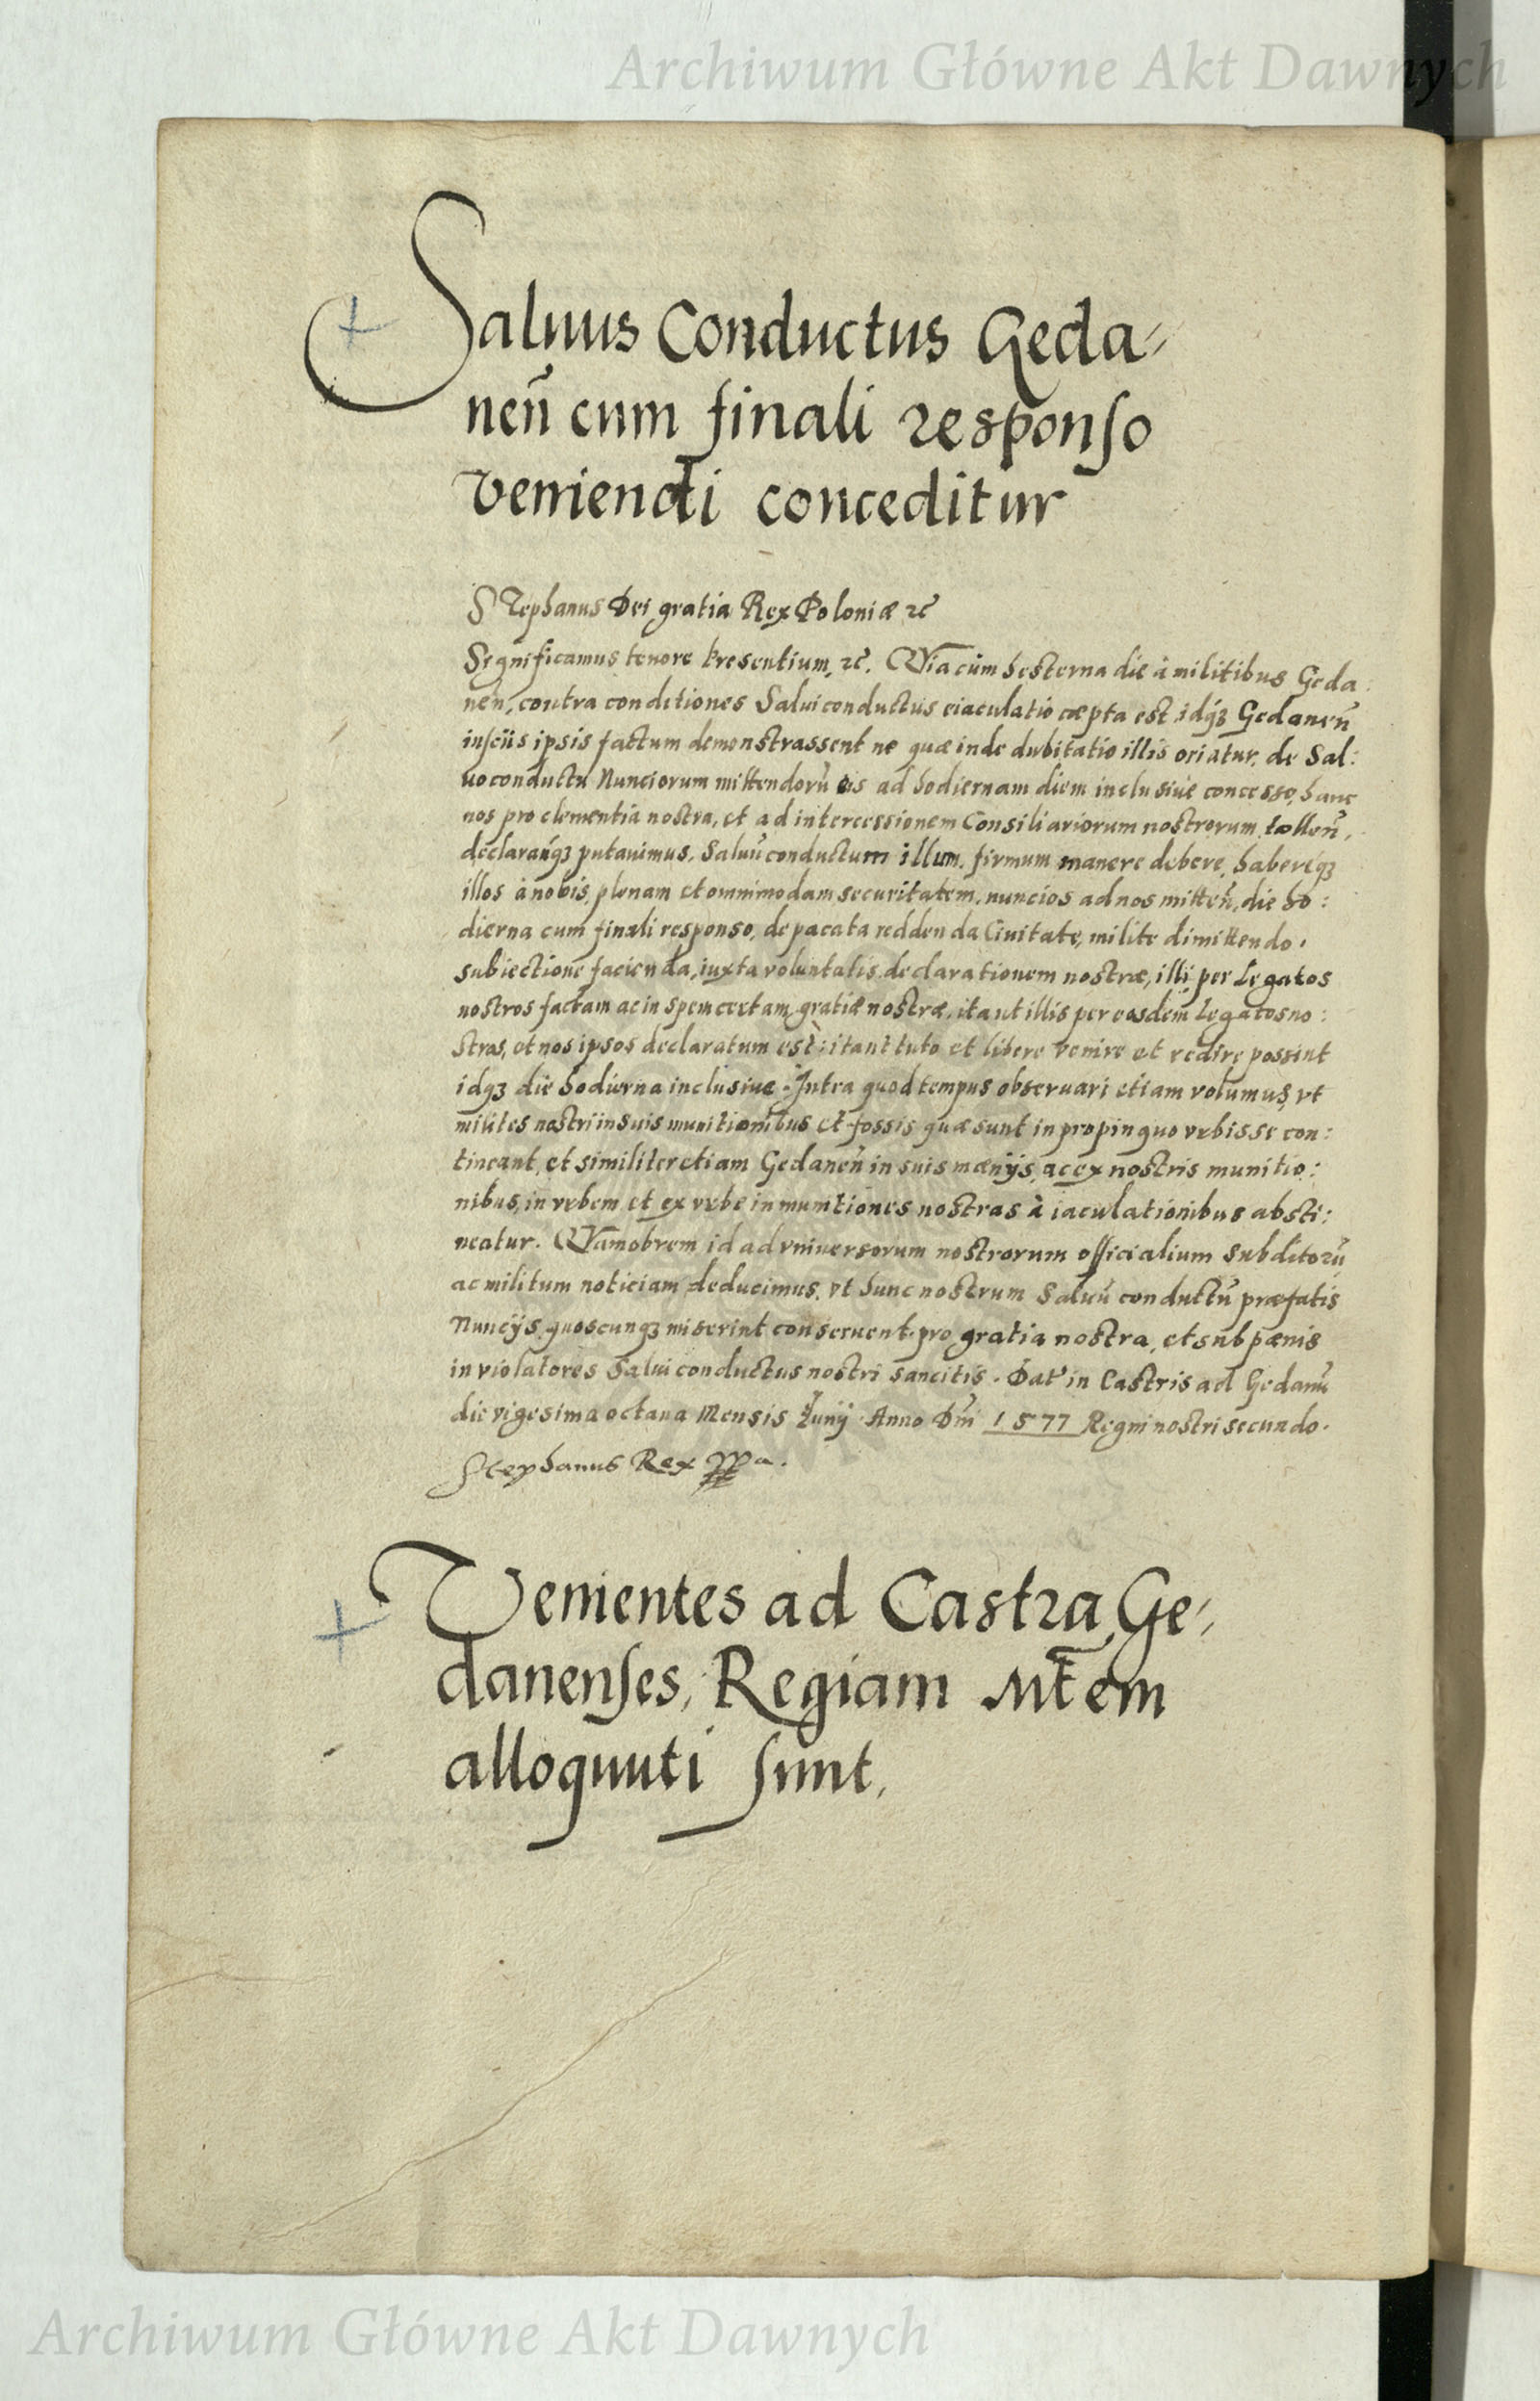 Archiwum Główne Akt Dawnych
Saluus Conductus Geda-
neñ cum finali responso
veniendi conceditur
Stephanus Dei gratia Rex Poloniæ ꝛc̃
Significamus tenore presentium, ꝛc̃. Quia cùm hesterna die à militibus Geda:
neñ, contra conditiones Salui conductus eiaculatio cæpta est, idq́ꝫ Gedaneñ
insciis ipsis factum demonstrassent ne quæ inde dubitatio illis oriatur, de Sal:
uo conductu Nunciorum mittendorũ eis ad hodiernam diem inclusiue concesso, hanc
nos pro clementia nostra, et ad intercessionem Consiliariorum nostrorum, tolleñ,
declarañqꝫ putauimus, Saluũ conductum illum, firmum manere debere, habereq́ꝫ
illos à nobis, plenam et omnimodam securitatem, nuncios ad nos mitteñ, die ho:
dierna cum finali responso, de pacata reddenda Ciuitate, milite dimittendo,
subiectione facienda, iuxta voluntatis declarationem nostræ, illi per Legatos
nostros factam ac in spem certam gratiæ nostræ, ita ut illis per eosdem Legatos no:
stros, et nos ipsos declaratum est: ita ut tuto et libere venire et redire possint
idqꝫ die hodierna inclusiue. Intra quod tempus obseruari etiam volumus, vt
milites nostri in suis munitionibus et fossis quæ sunt in propinquo vrbis se con:
tineant, et similiter etiam Gedaneñ in suis mænijs, ac ex nostris munitio:
nibus, in vrbem et ex vrbe in munitiones nostras à iaculationibus absti:
neatur. Quamobrem id ad vniuersorum nostrorum officialium subditorũ
ac militum noticiam deducimus, vt hunc nostrum Saluũ conductũ præfatis
Nuncijs, quoscunqꝫ miserint conseruent, pro gratia nostra, et sub pænis
in violatores Salui conductus nostri sancitis. Dat' in Castris ad Gedanũ
die vigesima octaua Mensis Iunij Anno Dñi 1577 Regni nostri secundo.
Stephanus Rex
Venientes ad Castra Ge-
danenses, Regiam Mt̃em
alloquuti sunt,
Archiwum Główne Akt Dawnych